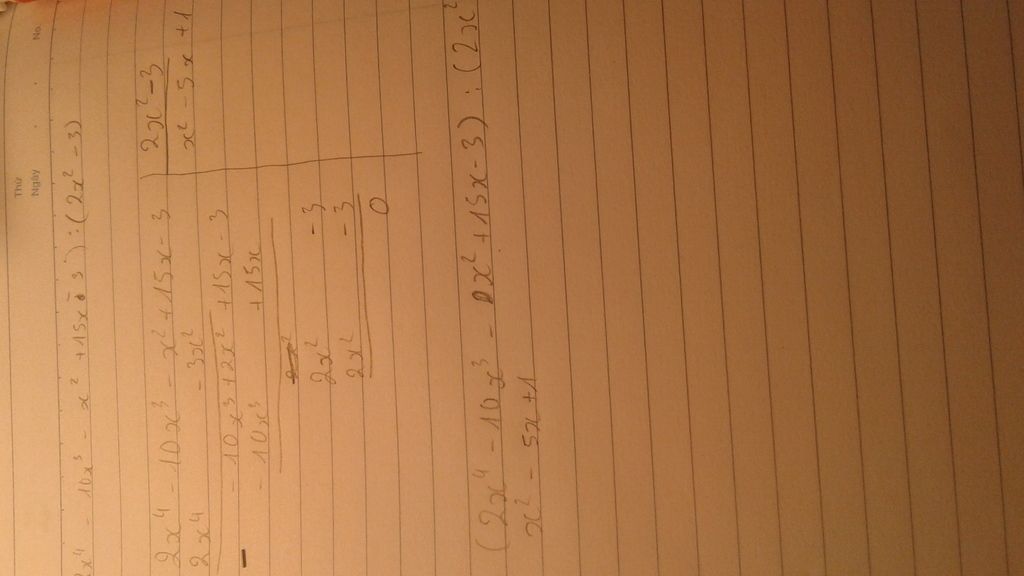 Thứ
Ngày
No.
2x⁴ - 10x³ - x² + 15x - 3) : (2x² - 3)
2x⁴ - 10x³ - x² + 15x - 3 | 2x² - 3
2x⁴ - 3x² | x² - 5x + 1
- 10x³ + 2x² + 15x - 3
- 10x³ + 15x
2x² - 3
2x² - 3
0
(2x⁴ - 10x³ - x² + 15x - 3) : (2x²
x² - 5x + 1